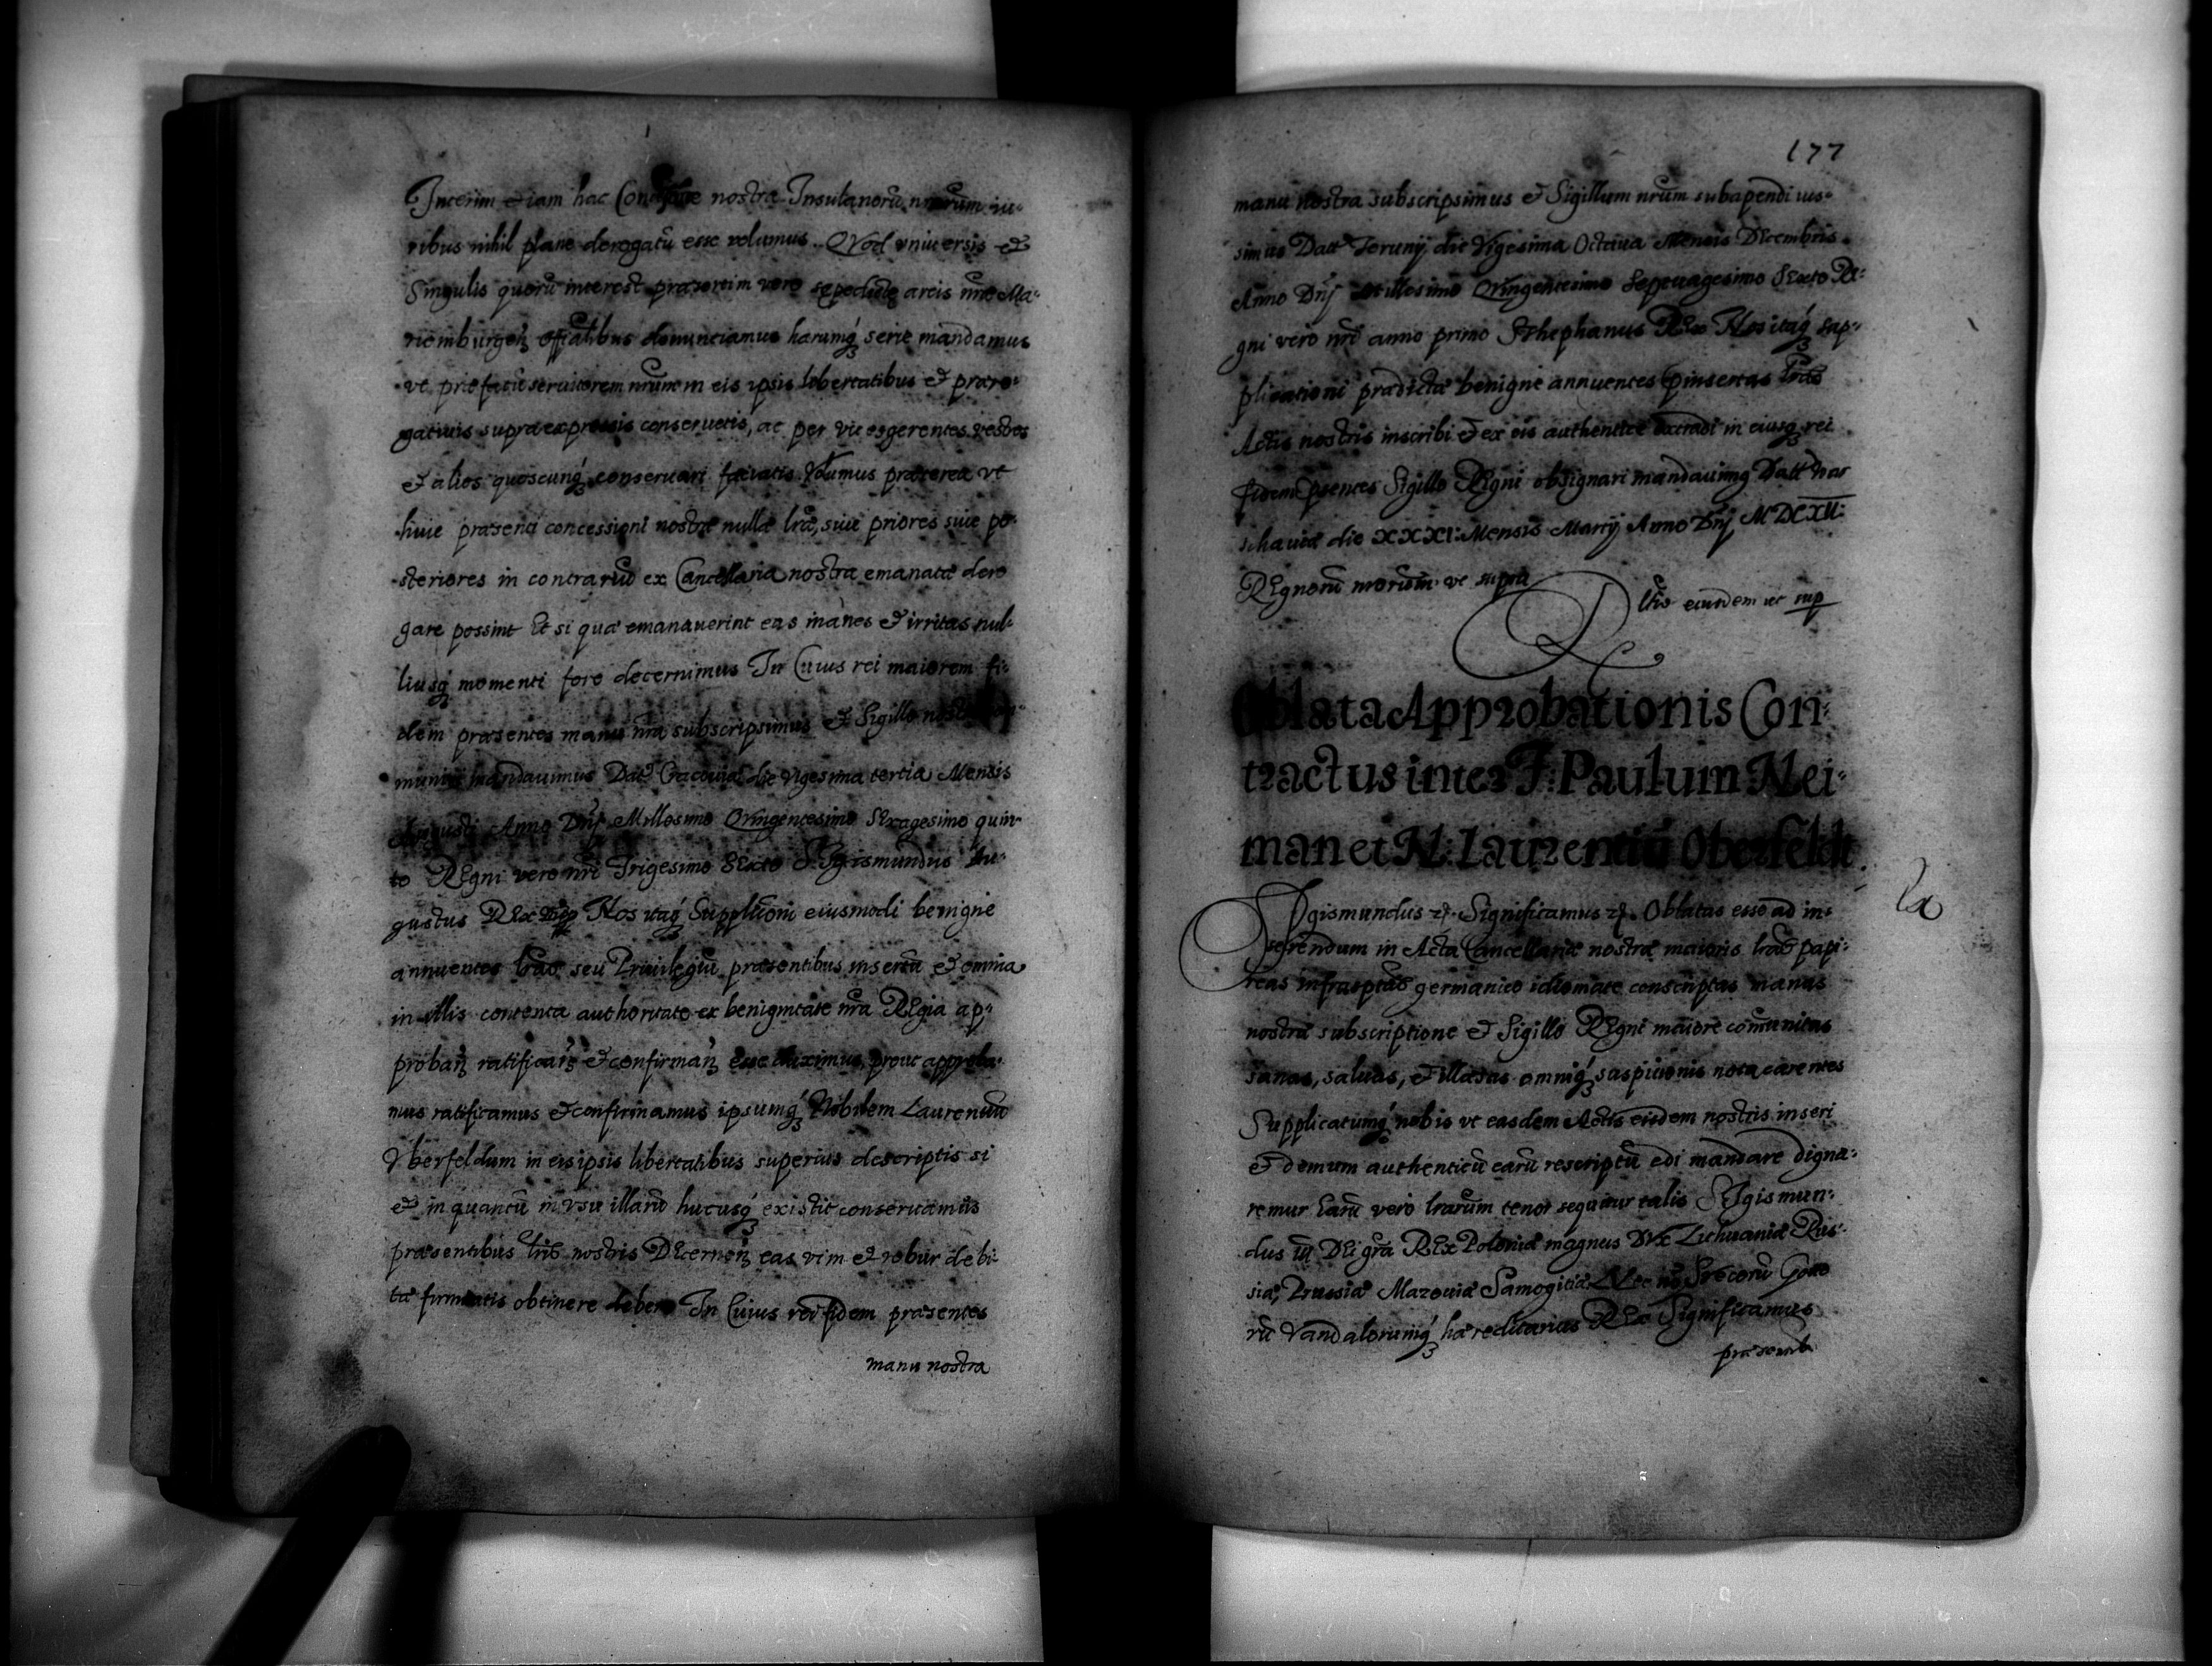 Interim etiam hac nostra Insulanorũ nrorum iu-
ribus nihil plane derogatũ esse volumus. Qvod vniuersis et
Singulis quorũ interest præsertim vero arcis nræ Ma-
riemburgeñ officialibus denunciamus harumq́ serie mandamus
vt præfatũ seruitorem nrum in eis ipsis libertatibus et præro-
gatiuis supra expressis conseruetis, ac per vices gerentes vestros
et alios quoscunq́ conseruari faciatis Volumus præterea vt
huic præsenti concessioni nostræ nullæ lræ, siue priores siue po-
steriores in contrariũ ex Cancellaria nostra emanatæ dero
gare possint Et si quæ emanauerint eas inanes et irritas nul-
liusq́ momenti fore decernimus In Cuius rei maiorem fi-
dem præsentes manu nra subscripsimus et Sigillo
muniri mandauimus Datt Cracouiæ die vigesima tertia Mensis
Augusti Anno Dnj Millesimo Qvingentesimo Sexagesimo quin-
to REgni vero nri Trigesimo Sexto SIgismundus Au-
gustus REx Nos itaq́ Supplicõni eiusmodi benigne
annuentes lras seu Priuilegiũ præsentibus insertũ et omnia
in illis contenta authoritate et benignitate nra REgia ap-
probañ ratificañ et confirmañ esse duximus, prout approba-
mus ratificamus et confirmamus ipsumq́ Nobilem Laurentiũ
Vberfeldum in eis ipsis libertatibus superius descriptis si
et in quantũ in vsu illarũ hucusq́ existit conseruamus
præsentibus lris nostris DEcerneñ eas vim et robur debi-
tæ firmitatis obtinere debere In Cuius rei fidem præsentes
manu nostra
177
manu nostra subscripsimus et Sigillum nrum subapendi ius-
simus Datt Torunij die Vigesima Octaua Mensis DEcembris
Anno Dnj Millesimo Qvingentesimo Septuagesimo SExto RE-
gni vero nri anno primo Sthephanus REx Nos itaq́ sup-
plicationi prædictæ benigne annuentes pinsertas lras
Actis nostris inscribi et ex eis authentice extradi in eiusq́ rei
fidem psentes Sigillo REgni obsignari mandauimus Datt Var
schauiæ die XXXI: Mensis Martij Anno Dnj MDCXII:
REgnorũ nrorum vt supra
Rltio eiusdem ut sup
Oblata Approbationis Con-
tractus inter F: Paulum Nei-
man et N: Laurentiũ Oberfeldt
SIgismundus etc. Significamus etc. Oblatas esse ad in-
serendum in Acta Cancellariæ nostræ maioris lras papi-
reas infrascptas germanico idiomate conscriptas manus
nostræ subscriptione et Sigillo REgni maiore comunitas
sanas, saluas, et illæsas omniq́ suspicionis nota carentes
Supplicatumq́ nobis vt easdem Actis eisdem nostris inseri
et demum authenticũ earũ rescriptũ edi mandare digna-
remur Earũ vero lrarum tenor sequitur talis SIgismun-
dus DEi gra REx Poloniæ magnus DVx Lithuaniæ Rus-
siæ, Prussiæ Mazouiæ Samogitiæ NEc nõ Svecorũ Goto
rũ Vandalorumq́ hæreditarius REx Significamus
præsentib